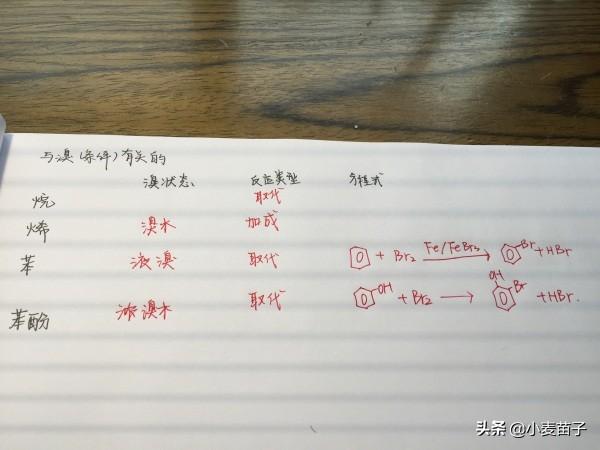 与溴(条件)有关的
溴状态 反应类型 方程式
烷 取代
烯 溴水 加成
苯 液溴 取代 + Br₂ Fe/FeBr₃ → Br + HBr
苯酚 浓溴水 取代 OH + Br₂ → OH Br + HBr.
头条 @小麦苗子